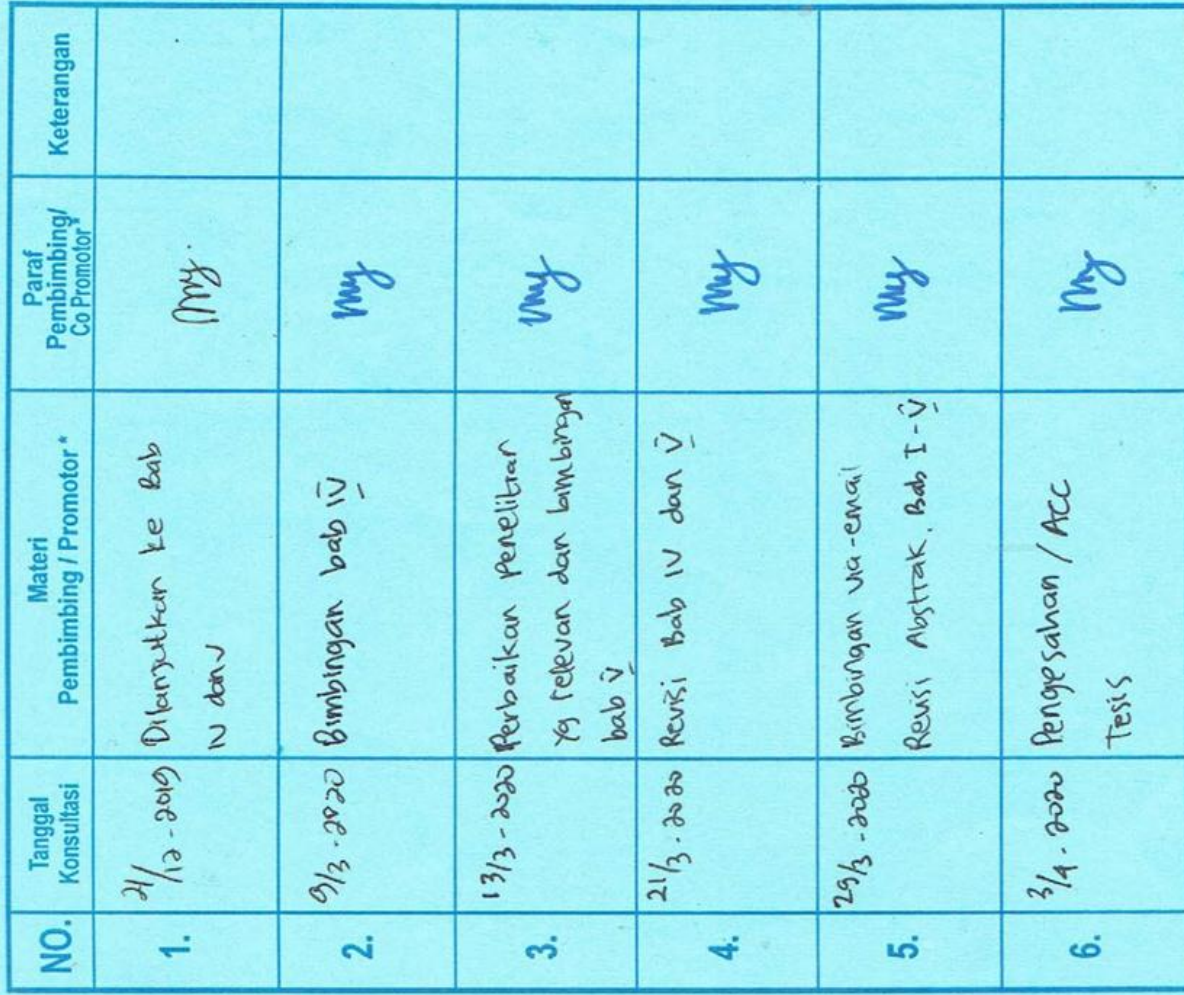 NO.
Tanggal
Konsultasi
Materi
Pembimbing / Promotor *
Paraf
Pembimbing/
Co Promotor*
Keterangan
1.
/12 - 2019
Dilanjutkan ke Bab
IV dan V
2.
9/3 - 2020
Bimbingan bab IV
3.
13/3 - 2020
Perbaikan Penelitian
yg relevan dan bimbingan
bab V
4.
21/3 - 2020
Revisi Bab IV dan V
5.
29/3 - 2020
Bimbingan via -email
Revisi Abstrak, Bab I - V
6.
3/4 - 2020
Pengesahan / ACC
Tesis